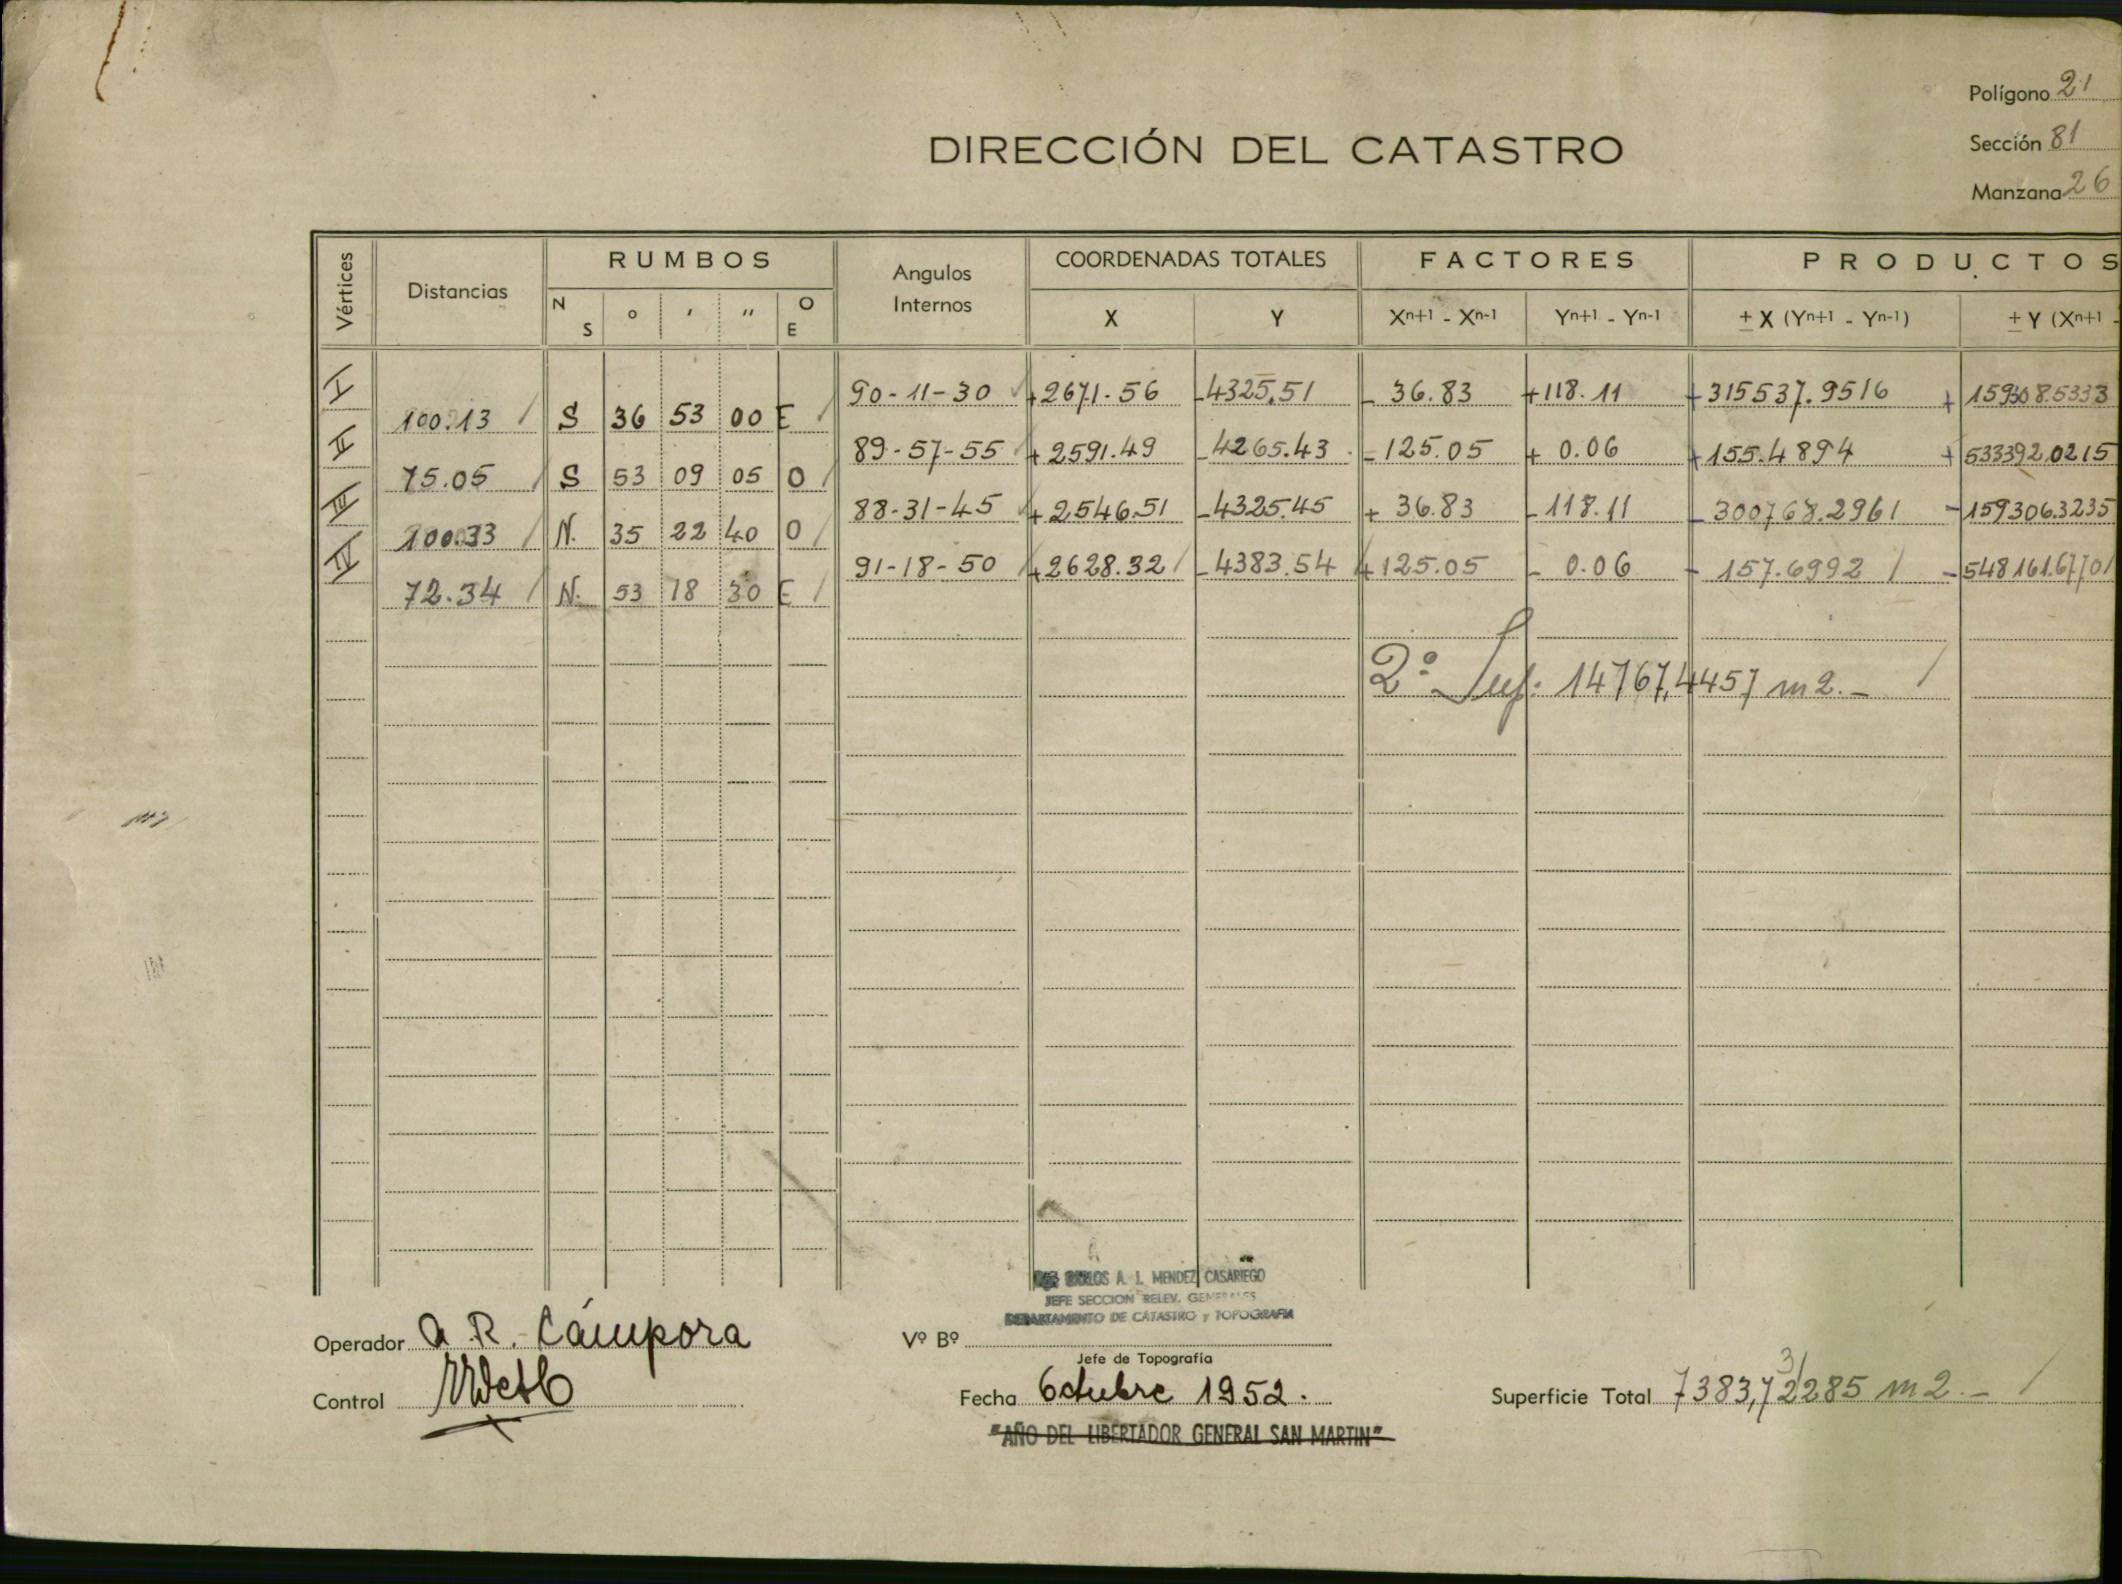 Polígono 21
DIRECCIÓN DEL CATASTRO
Sección 81
Manzana 26
Vértices Distancias RUMBOS Angulos Internos COORDENADAS TOTALES FACTORES PRODUCTOS
N S ° ' " O E X Y Xn+1 - Xn-1 Yn+1 - Yn-1 ± X (Yn+1 - Yn-1) ± Y (Xn+1 -
I 90-11-30 +2671.56 -4325.51 - 36.83 +118.11 +315537.9516 + 159308.5333
100.13 S 36 53 00 E
II 89-57-55 +2591.49 -4265.43 -125.05 + 0.06 +155.4894 +533392.0215
75.05 S 53 09 05 O
III 88-31-45 +2546.51 -4325.45 + 36.83 -118.11 -300768.2961 -159306.3235
100.33 N. 35 22 40 O
IV 91-18-50 +2628.32 -4383.54 +125.05 - 0.06 - 157.6992 -548161.6770
72.34 N. 53 18 30 E
2° Sup. 14767,4457 m2.-
CARLOS A. J. MENDEZ CASARIEGO
JEFE SECCION RELEV. GENERALES
DEPARTAMENTO DE CATASTRO y TOPOGRAFIA
Operador A. R. Cámpora
Vº Bº
Jefe de Topografía
Control
Fecha Octubre 1952.
Superficie Total 7383,72285 m2.-
3
"AÑO DEL LIBERTADOR GENERAL SAN MARTIN"